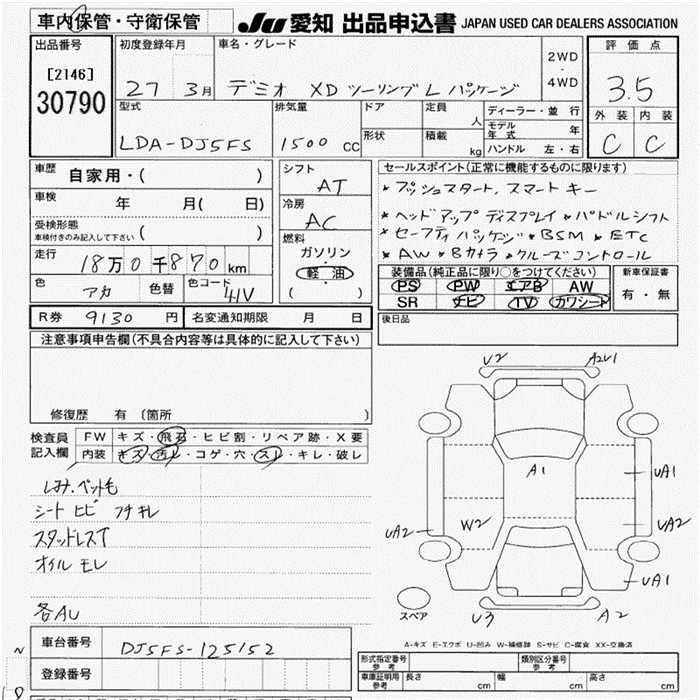 車内保管・守衛保管
JU 愛知 出品申込書 JAPAN USED CAR DEALERS ASSOCIATION
出品番号 初度登録年月 車名・グレード 評価点
[2146]
30790
27 3月 デミオ XD ツーリングL パッケージ
2WD
・
4WD
3.5
型式 排気量 ドア 定員 人 ディーラー・並行 外装 内装
LDA-DJ5FS 1500 CC 形状 積載 kg モデル年式 年 C C
ハンドル 左・右
車歴 自家用・( )
シフト AT
セールスポイント(正常に機能するものに限ります)
*プッシュスタート、スマートキー
車検 年 月( 日)
冷房 AC
*ヘッドアップディスプレイ *パドルシフト
受検形態
車検付きのみ記入して下さい ( )
燃料
ガソリン
・
軽油
( )
*セーフティパッケージ *BSM *ETC
*AW *Bカメラ *クルーズコントロール
走行 18万0千870km
装備品(純正品に限り○をつけてください) 新車保証書
色 アカ 色替 色コード 41V
PS PW エアB AW 有・無
SR ナビ TV カワシート
R券 9130円 名変通知期限 月 日
後日品
注意事項申告欄(不具合内容等は具体的に記入して下さい)
修復歴 有 〔箇所 〕
検査員記入欄
FW キズ・飛石・ヒビ割・リペア跡・X要
内装 キズ・汚レ・コゲ・穴・スレ・キレ・破レ
シート ヒビ フチキレ
スタッドレスT
オイル モレ
各AU
U2 A2U1
A1
UA1
UA2 W2 UA2
UA1
U3 A2
スペア
A-キズ E-エクボ U-凹み W-補修跡 S-サビ C-腐食 XX-交換済
車台番号 DJ5FS-125152
登録番号
形式指定番号
参考
類別区分番号
参考
車庫証明用
参考
長さ cm 幅 cm 高さ cm